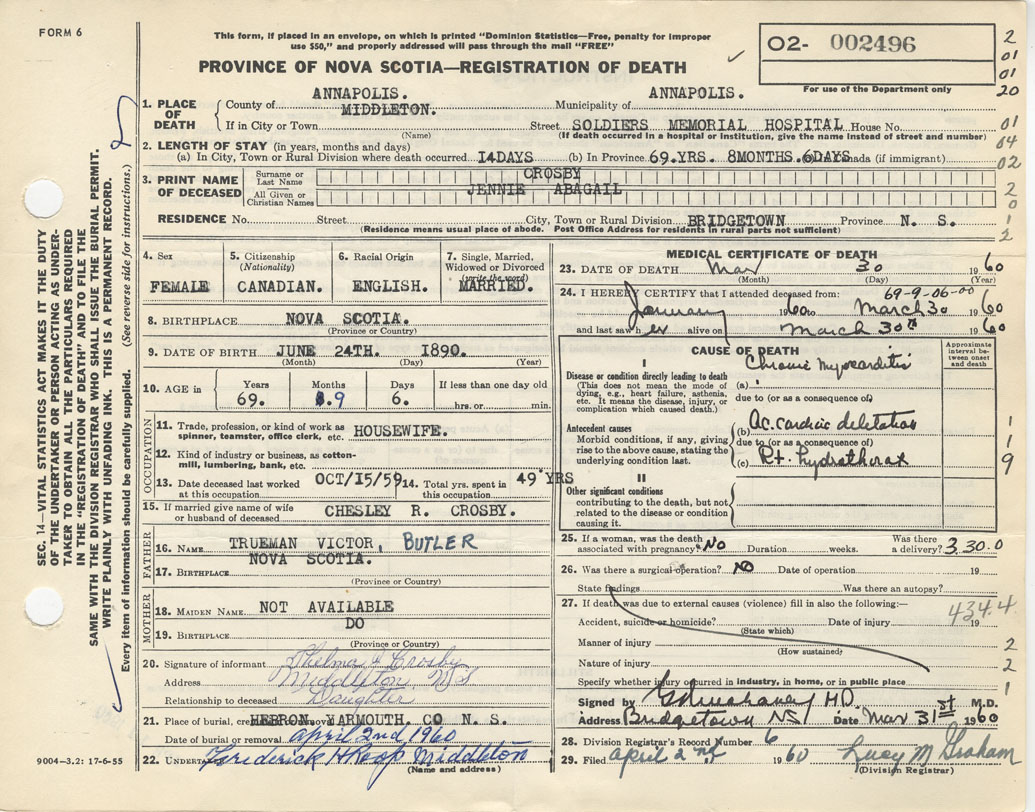 FORM 6
This form, if placed in an envelope, on which is printed "Dominion Statistics—Free, penalty for improper
use $50," and properly addressed will pass through the mail "FREE"
O2- 002496
For use of the Department only
PROVINCE OF NOVA SCOTIA—REGISTRATION OF DEATH
2
01
01
20
01
04
02
2
0
1
2
SEC. 14—VITAL STATISTICS ACT MAKES IT THE DUTY
OF THE UNDERTAKER OR PERSON ACTING AS UNDER-
TAKER TO OBTAIN ALL THE PARTICULARS REQUIRED
IN THE "REGISTRATION OF DEATH" AND TO FILE THE
SAME WITH THE DIVISION REGISTRAR WHO SHALL ISSUE THE BURIAL PERMIT.
WRITE PLAINLY WITH UNFADING INK. THIS IS A PERMANENT RECORD.
Every item of information should be carefully supplied. (See reverse side for instructions.)
1. PLACE OF DEATH
County of ANNAPOLIS. Municipality of ANNAPOLIS.
If in City or Town MIDDLETON. Street SOLDIERS MEMORIAL HOSPITAL House No.
(Name) (If death occurred in a hospital or institution, give the name instead of street and number)
2. LENGTH OF STAY (in years, months and days)
(a) In City, Town or Rural Division where death occurred 14DAYS (b) In Province 69.YRS. 8MONTHS.6DAYS nada (if immigrant)
3. PRINT NAME OF DECEASED
Surname or Last Name CROSBY
All Given or Christian Names JENNIE ABAGAIL
RESIDENCE No. Street City, Town or Rural Division BRIDGETOWN Province N. S.
(Residence means usual place of abode. Post Office Address for residents in rural parts not sufficient)
4. Sex 5. Citizenship (Nationality) 6. Racial Origin 7. Single, Married, Widowed or Divorced (write the word)
FEMALE CANADIAN. ENGLISH. MARRIED.
8. BIRTHPLACE NOVA SCOTIA.
(Province or Country)
9. DATE OF BIRTH JUNE 24TH. 1890.
(Month) (Day) (Year)
10. AGE in Years Months Days If less than one day old
69. 9 6. hrs. or min.
OCCUPATION
11. Trade, profession, or kind of work as
spinner, teamster, office clerk, etc. HOUSEWIFE.
12. Kind of industry or business, as cotton-
mill, lumbering, bank, etc.
13. Date deceased last worked at this occupation OCT/I5/59 14. Total yrs. spent in this occupation 49 YRS
15. If married give name of wife
or husband of deceased CHESLEY R. CROSBY.
FATHER
16. NAME TRUEMAN VICTOR, BUTLER
17. BIRTHPLACE NOVA SCOTIA.
(Province or Country)
MOTHER
18. MAIDEN NAME NOT AVAILABLE
19. BIRTHPLACE DO
(Province or Country)
20. Signature of informant Thelma A Crosby
Address Middleton, NS
Relationship to deceased Daughter
21. Place of burial, HEBRON, YARMOUTH, CO N. S.
Date of burial or removal April 2nd 1960
22. UNDERTA Frederick H Roop Middleton
(Name and address)
9004—3.2: 17-6-55
MEDICAL CERTIFICATE OF DEATH
23. DATE OF DEATH Mar 30 1960
(Month) (Day) (Year)
69-9-06-00
24. I HEREBY CERTIFY that I attended deceased from:
January 1960 to March 30 1960
and last saw her alive on March 30th 1960
CAUSE OF DEATH
Approximate interval between onset and death
I
Disease or condition directly leading to death
(This does not mean the mode of
dying, e.g., heart failure, asthenia,
etc. It means the disease, injury, or
complication which caused death.)
(a) Chronic Myocarditis
due to (or as a consequence of)
Antecedent causes
Morbid conditions, if any, giving
rise to the above cause, stating the
underlying condition last.
(b) Ac. cardiac dilatation
due to (or as a consequence of)
(c) Rt. hydrothorax
1
1
9
II
Other significant conditions
contributing to the death, but not
related to the disease or condition
causing it.
25. If a woman, was the death
associated with pregnancy? No Duration weeks. Was there a delivery? 3.30.0
26. Was there a surgical operation? No Date of operation 19
State findings Was there an autopsy?
27. If death was due to external causes (violence) fill in also the following:— 434.4
Accident, suicide or homicide? Date of injury 19
(State which)
Manner of injury 2
(How sustained)
Nature of injury 2
Specify whether injury occurred in industry, in home, or in public place 1
Signed by M.D. M.D.
Address Bridgetown NS Date Mar 31st 1960
28. Division Registrar's Record Number 6
29. Filed April 2nd 1960 Lucy M Graham
(Division Registrar)